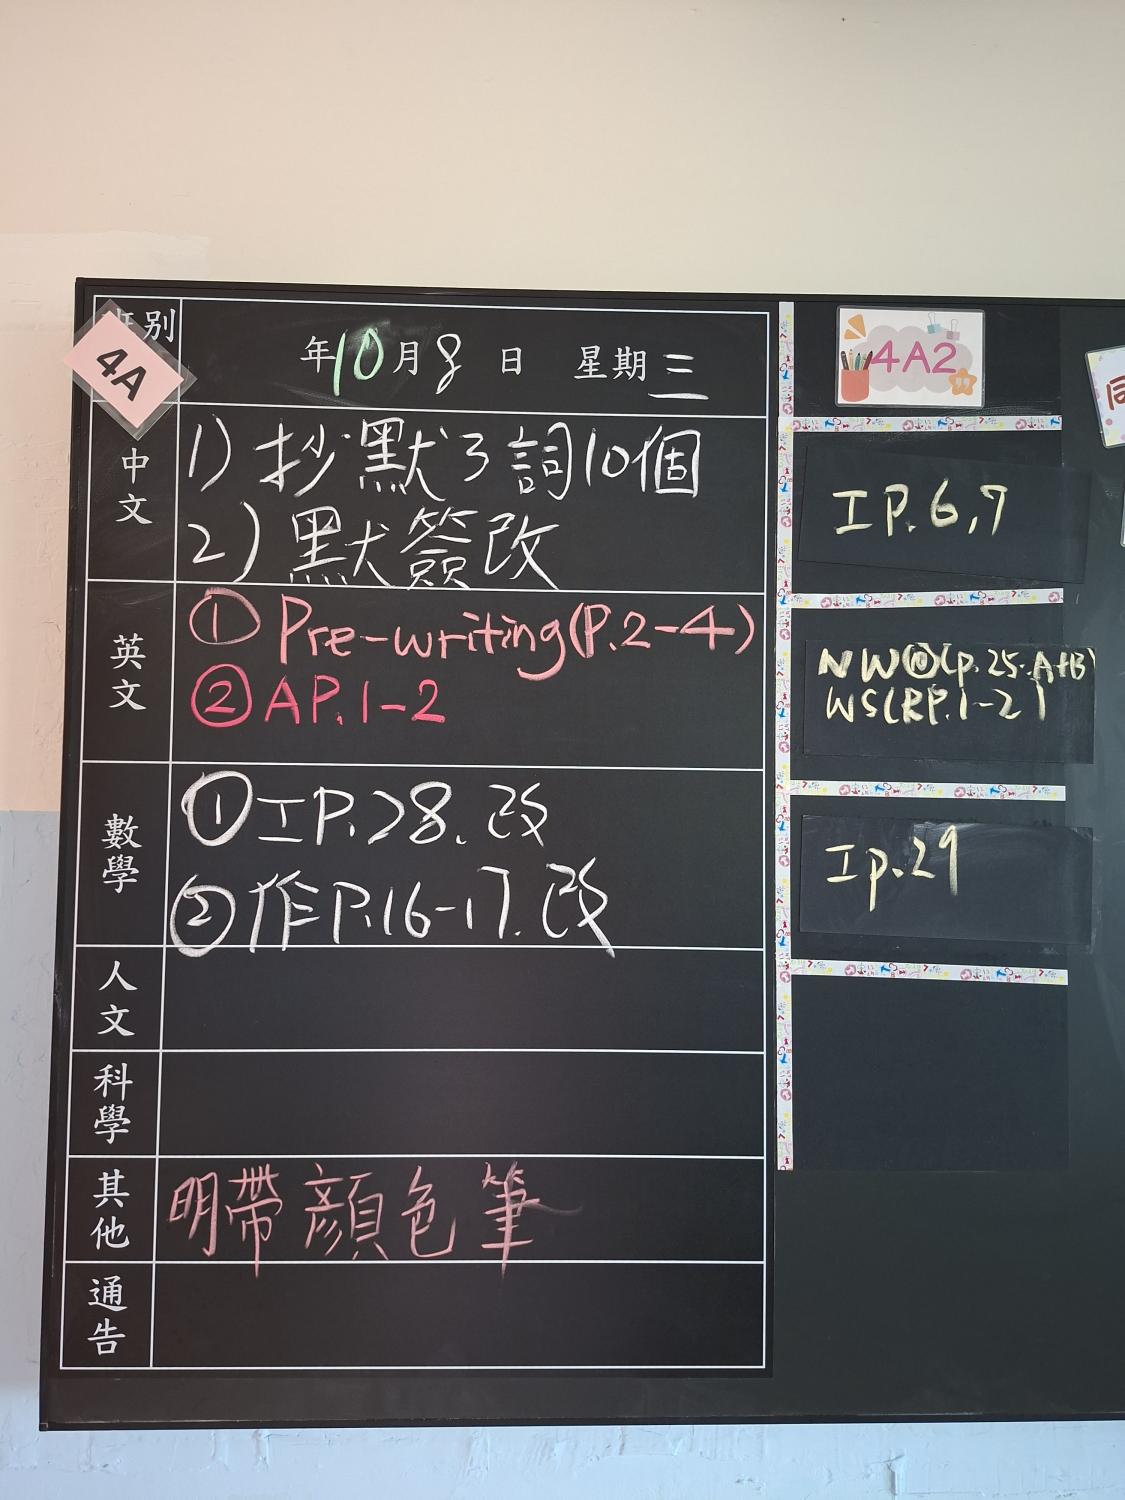 班別
4A
年10月8日 星期三
中文
1) 抄默3詞10個
2) 默簽改
英文
① Pre-writing(P.2-4)
② AP.1-2
數學
① 工P.28.改
② 作P.16-17.改
人文
科學
其他
明帶顏色筆
通告
4A2
工P.6,7
NW⑩(p.25.A+B)
WS(RP.1-2)
工p.29
同